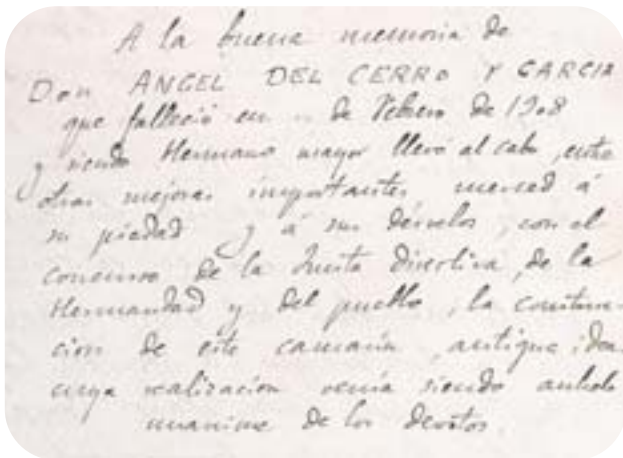 A la buena memoria de
Don ANGEL DEL CERRO Y GARCIA
que falleció en .. de Febrero de 1908
y siendo Hermano mayor llevó al cabo, entre
otras mejoras importantes merced á
su piedad y á sus desvelos, con el
concurso de la Junta Directiva, de la
Hermandad y del pueblo, la construc-
cion de este camarin, antigua idea
cuya realizacion venía siendo anhelo
unanime de los devotos.